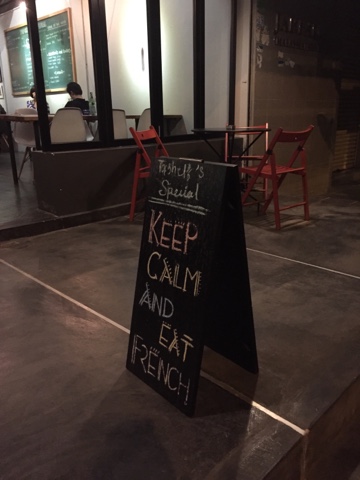 's
Special
KEEP
CALM
AND
EAT
FRENCH